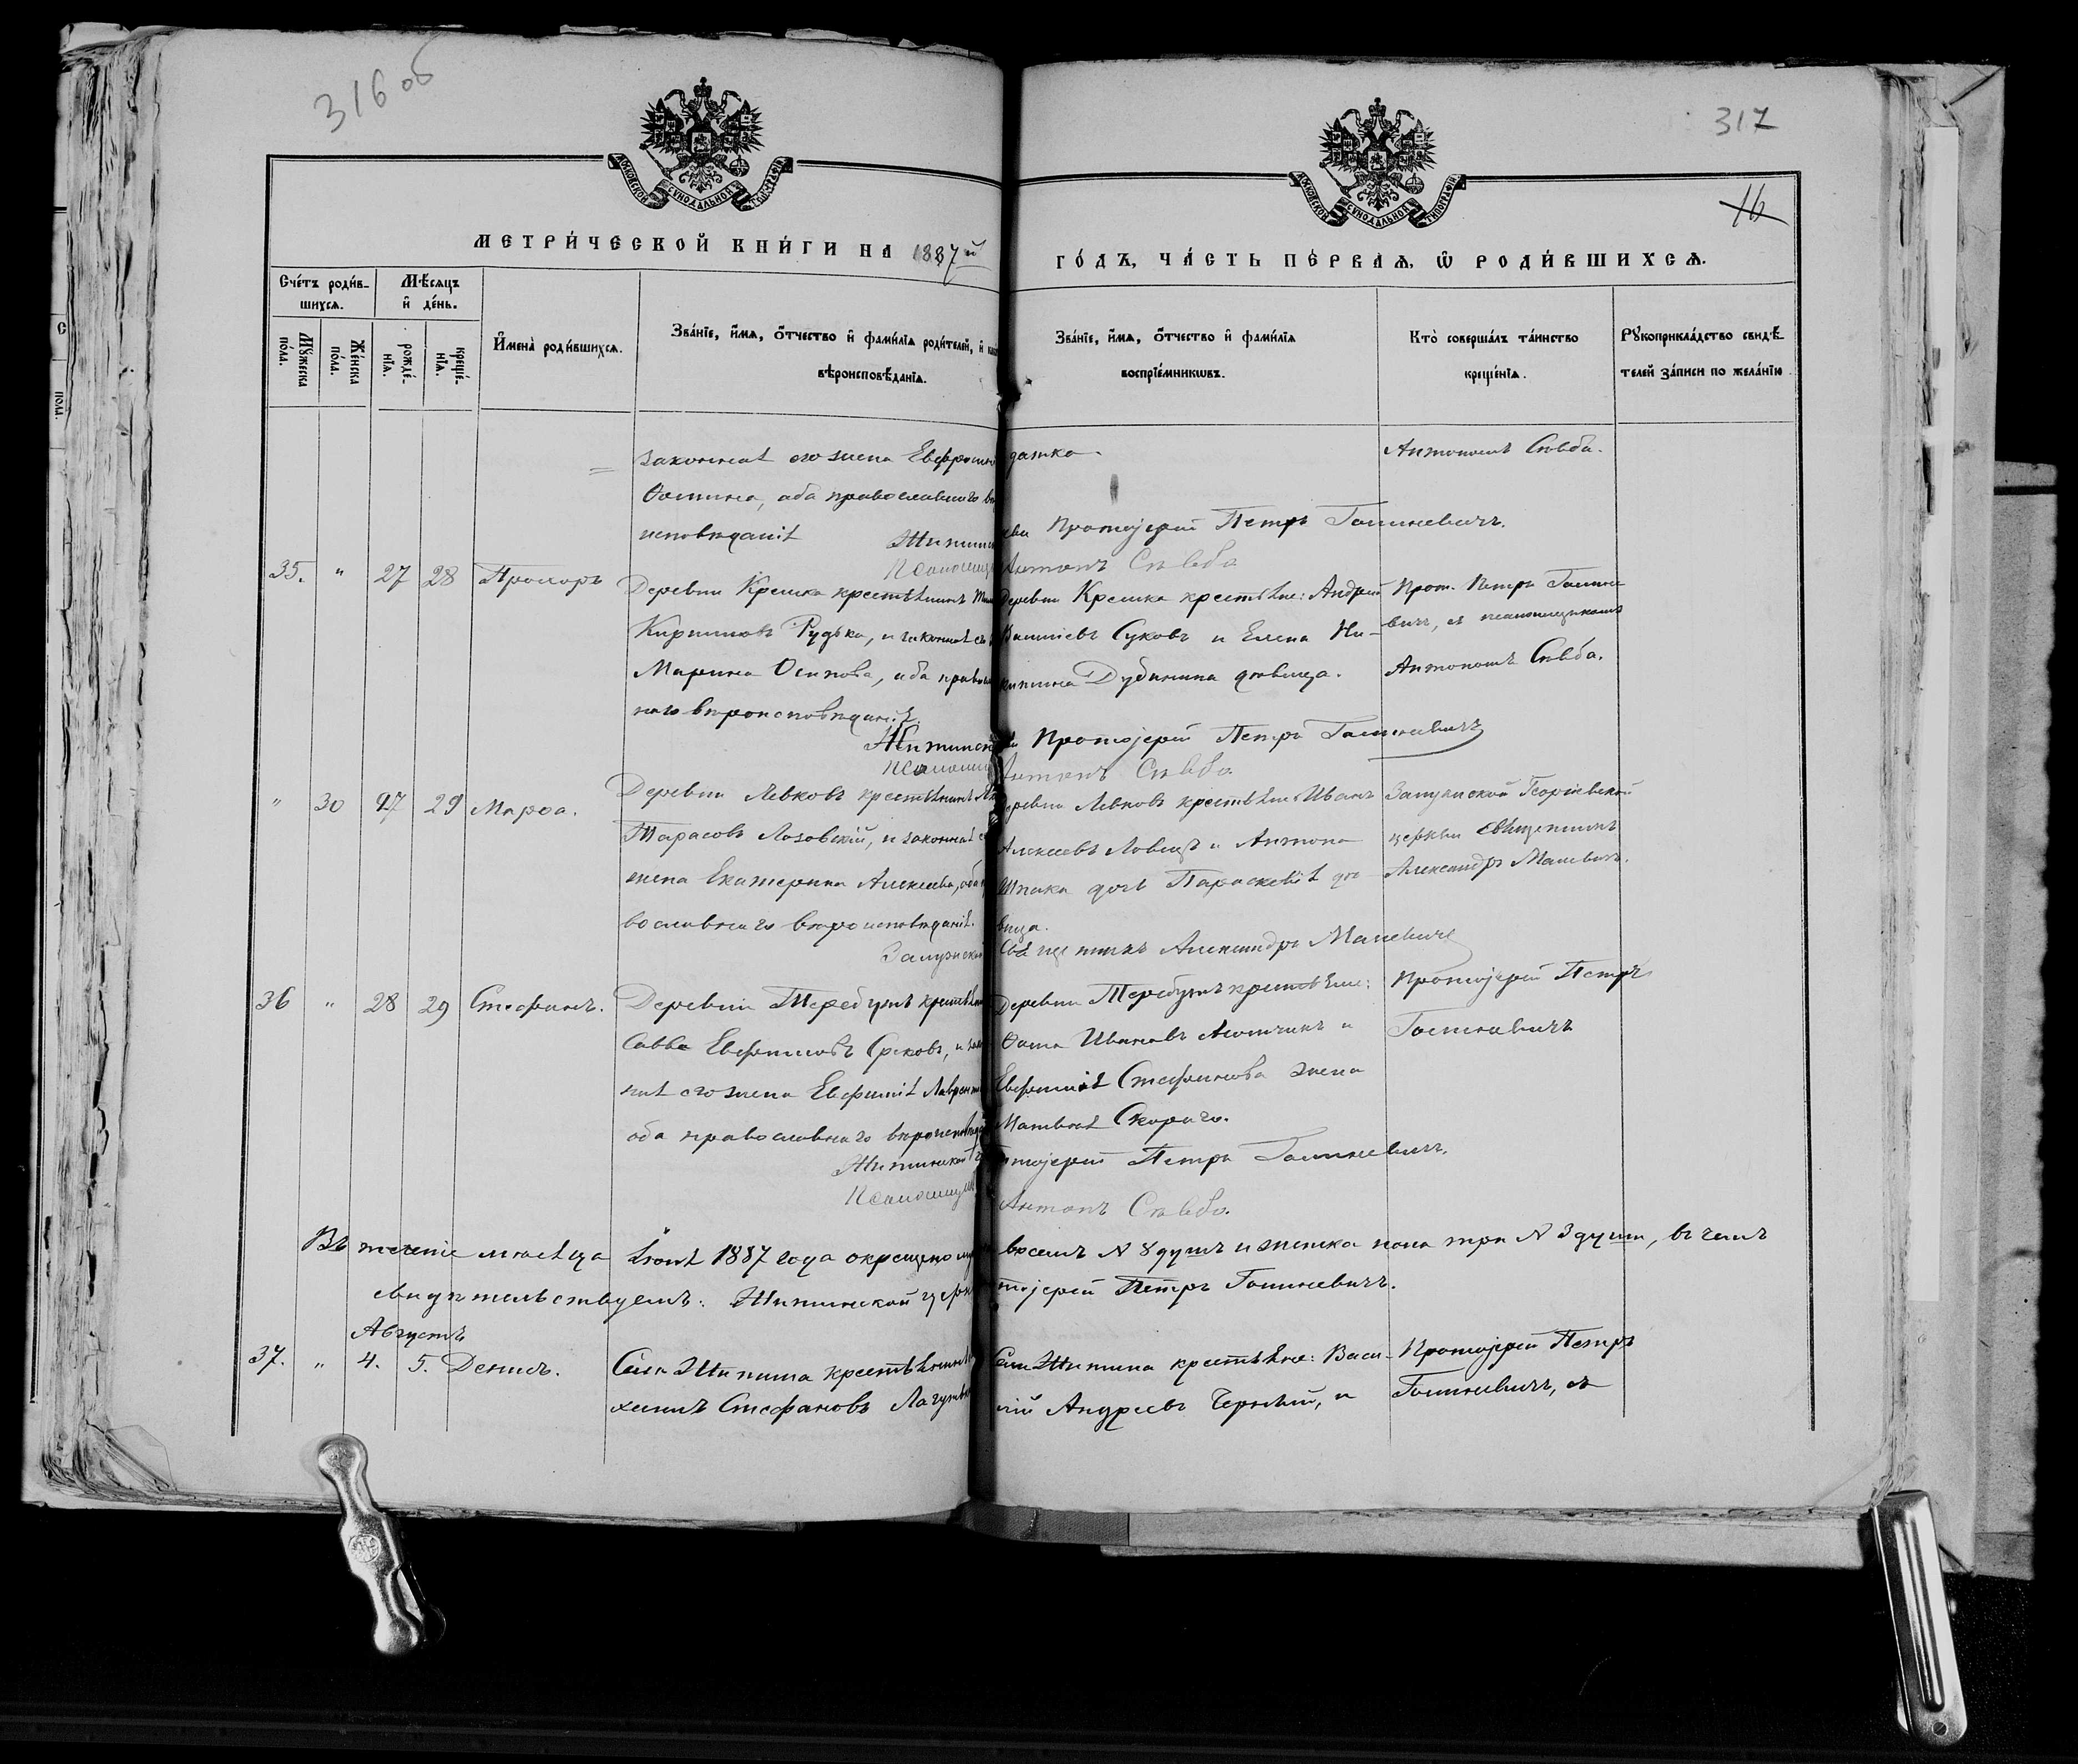 316 об
317
16
МОСКОВСКОЙ СУНОДАЛЬНОЙ ТИПОГРАФІИ
МОСКОВСКОЙ СУНОДАЛЬНОЙ ТИПОГРАФІИ
МЕТРИ́ЧЕСКОЙ КНИ́ГИ НА 1887й
ГО́ДЪ, ЧА́СТЬ ПЕ́РВАЯ, Ѡ РОДИ́ВШИХСЯ.
Сче́тъ роди́в-
шихся.
Мѣсяцъ
и҆ де́нь.
Му́жеска по́ла.
Же́нска по́ла.
рожде́-нїя.
креще́-нїя.
И҆мена̀ роди́вшихся.
Зва́нїе, и҆́мя, ѻ҆́тчество и҆ фами́лїя роди́телей, и҆
вѣроисповѣ́данїя.
Зва́нїе, и҆́мя, ѻ҆́тчество и҆ фами́лїя
воспрїе́мникѡвъ.
Кто̀ соверша́лъ та́инство
креще́нїя.
Рꙋкоприкла́дство свидѣ́-
телей за́писи по жела́нїю
законная его жена Евфросин
Ѳомина, оба православнаго вѣ
исповѣданія
датко.
Антономъ Сѣвба.
Протоіерей Петръ Гоминевичъ.
Антонъ Сѣвба
35. " 27 28 Прохоръ
Деревни Крешка крестьянинъ
Кириловъ Рудько, и законная его
Марина Осипова, оба правос
наго вѣроисповѣданія.
Деревни Крешка крестьяне: Андрей
Василіевъ Суковъ и Елена Ни-
китина Дубинина дѣвица.
Прот. Петръ Гомине
вичъ, съ псаломщикомъ
Антономъ Сѣвба.
Протоіерей Петръ Гоминевичъ
Антонъ Сѣвбо
" 30 27 29 Марѳа.
Деревни Левковъ крестьянинъ
Тарасовъ Лозовскій, и законная е
жена Екатерина Алексеева, оба п
вославнаго вѣроисповѣданія.
Деревни Левковъ крестьяне Иванъ
Алексеевъ Ловецъ и Антона
Шпака дочь Параскевія дѣ-
вица.
Георгіевской
церкви Священникъ
Александръ Малевичъ.
Священникъ Александръ Малевичъ
36 " 28 29 Стефанъ.
Деревни Теребутъ крестьян
Савва Евфимовъ Грековъ, и зак
ная его жена Евфимія Лаврент
оба православнаго вѣроисповѣд
Деревни Теребутъ крестьяне:
Ѳома Ивановъ и
Евфимія Стефанова жена
Матвея Скораго.
Протоіерей Петръ
Гоминевичъ
Житинской ц
тоіерей Петръ Гоминевичъ.
Псаломщик
Антонъ Сѣвбо.
Въ теченіе мѣсяца Іюля 1887 года окрещено му восемъ № 8 душъ и женска пола три № 3 души, въ чемъ
свидѣтельствуемъ: Житинской церк тоіерей Петръ Гоминевичъ.
Августъ
37. " 4. 5. Денисъ.
Села Житина крестьянинъ
химъ Стефановъ Лагутъ
Села Житина крестьяне: Васи-
лій Андреевъ Черный, и
Протоіерей Петръ
Гоминевичъ, съ